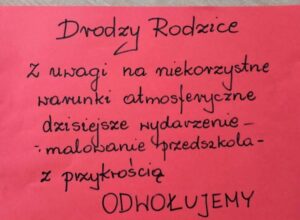 Drodzy Rodzice
Z uwagi na niekorzystne
warunki atmosferyczne
dzisiejsze wydarzenie -
- malowanie przedszkola -
z przykrością
ODWOŁUJEMY